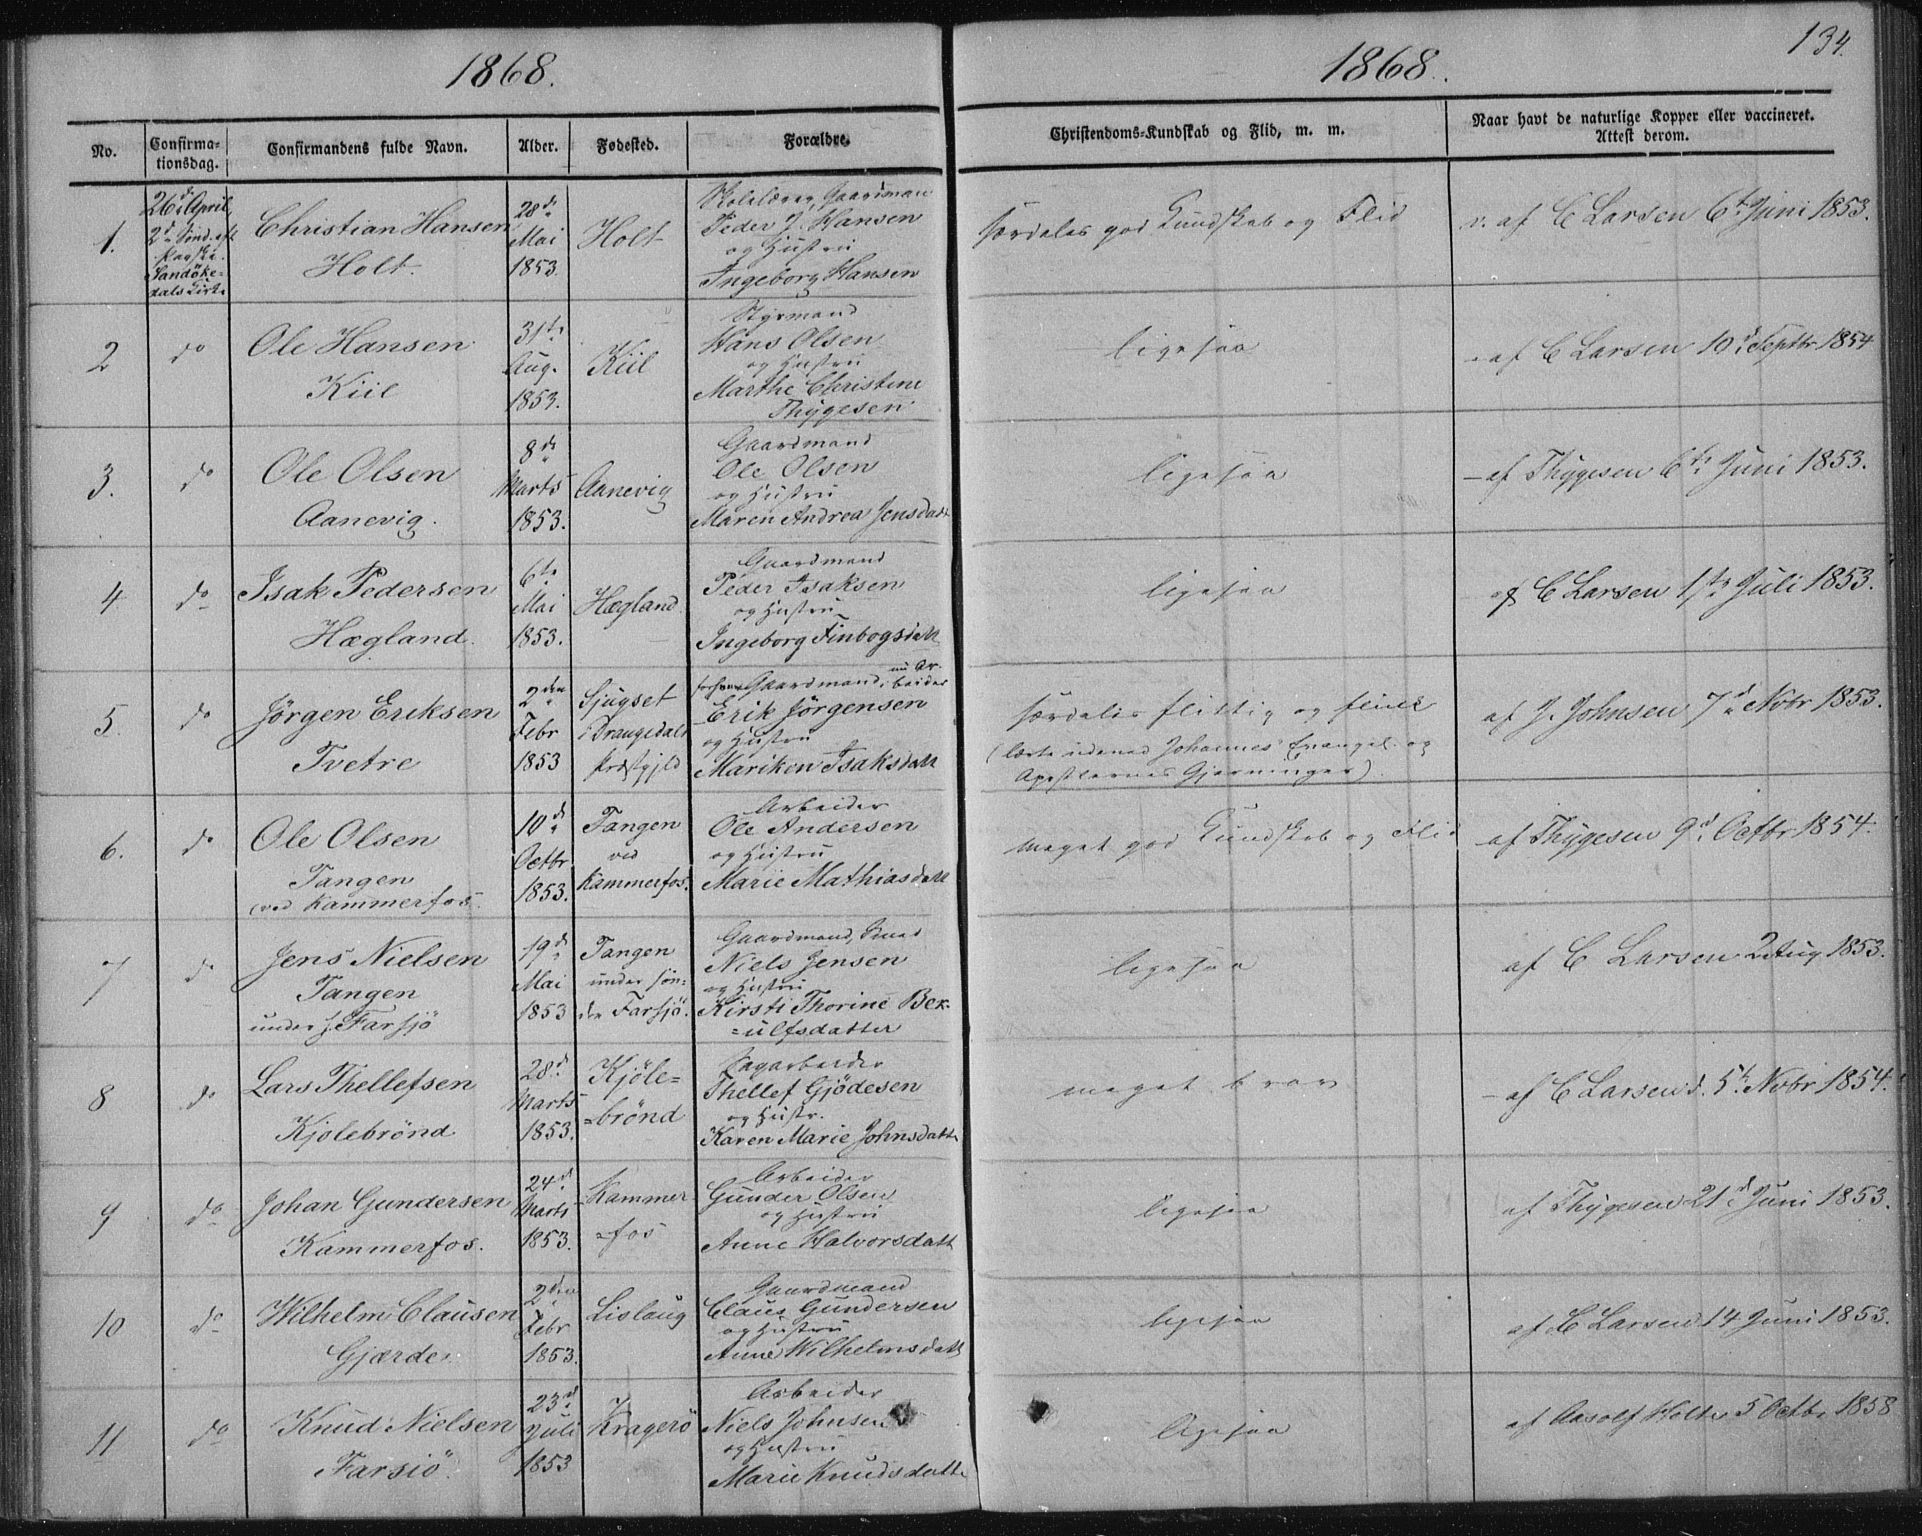 1868.
1868.
134.
No.
Confirma-
tionsdag.
Confirmandens fulde Navn.
Alder.
Fødested.
Forældre.
Christendoms-Kundskab og Flid, m. m.
Naar havt de naturlige Kopper eller vaccineret.
Attest derom.
1.
26d April,
2d Sønd. eft
Paaske.
Sandøke-
dals Kirke
Christian Hansen
Holt.
28de
Mai
1853.
Holt
Skolelærer, Gaardman
Peder J. Hansen
og Hustru
Ingeborg Hansen
særdeles god Kundskab og Flid
v. af C Larsen 6te Juni 1853.
2
do
Ole Hansen
Kiil
31te
Aug.
1853.
Kiil
Styrmand
Hans Olsen
og Hustru
Marthe Christine
Thygesen
ligesaa
- af C Larsen 10d Septbr 1854
3.
do
Ole Olsen
Aanevig.
8de
Marts
1853.
Aanevig
Gaardmand
Ole Olsen
og Hustru
Maren Andrea Jensdatt
ligesaa
- af Thygesen 6te Juni 1853.
4
do
Isak Pedersen
Hægland.
6te
Mai
1853.
Hægland
Gaardmand
Peder Isaksen
og Hustru
Ingeborg Finbogsdatt
ligesaa
af C Larsen 1te Juli 1853.
5.
do
Jörgen Eriksen
Tvetre
2den
Febr
1853
Gjugset
i Drangedals
Præstgjld
forhen Gaardmand, nu Ar-
beider
Erik Jörgensen
og Hustru
Mariken Isaksdatt
særdeles flittig og flink
(lærte udenad Johannes Evangel. og
Apostlernes Gjerninger).
af J. Johnsen 7d Nobr 1853.
6.
do
Ole Olsen
Tangen
(ved Kammerfos.
10d
Octbr
1853.
Tangen
ved
Kammerfos.
Arbeider
Ole Andersen
og Hustru
Marie Mathiasdatt
meget god Kundskab og Flid
af Thygesen 9d Octbr 1854.
7
do
Jens Nielsen
Tangen
under S. Farsjö
19d
Mai
1853
Tangen
under søn-
dre Farsjö.
Gaardmand,
Niels Jensen
og Hustru
Kirsti Thorine Ber-
=ulfsdatter
ligesaa
af C Larsen 2 Aug 1853.
8
do
Lars Thellefsen
Kjolebrönd
28d
Marts
1853.
Kjöle=
=brönd
Sagarbeider
Thellef Gjödesen
og Hustr.
Karen Marie Johnsdatte
meget brav
- af C Larsen d. 5te Nobr 1854.
9
do
Johan Gundersen
Kammerfos.
24d
Marts
1853.
Kammer
=fos
Arbeider
Gunder Olsen
og Hustru
Anne Halvorsdatt
ligesaa
af Thygesen 21d Juni 1853.
10
do
Wilhelm Clausen
Gjærde.
2den
Febr
1853.
Lislaug
Gaardmand
Claus Gundersen
og Hustru
Anne Wilhelmsdatt
ligesaa
af C Larsen 14 Juni 1853.
11
do
Knud Nielsen
Farsiö.
23d
Juli
1853
Kragerö
Arbeider
Niels Johnsen
og Hustru
Marie Knudsdatte
ligesaa
af Aasolf Holte 5 Octbr 1858